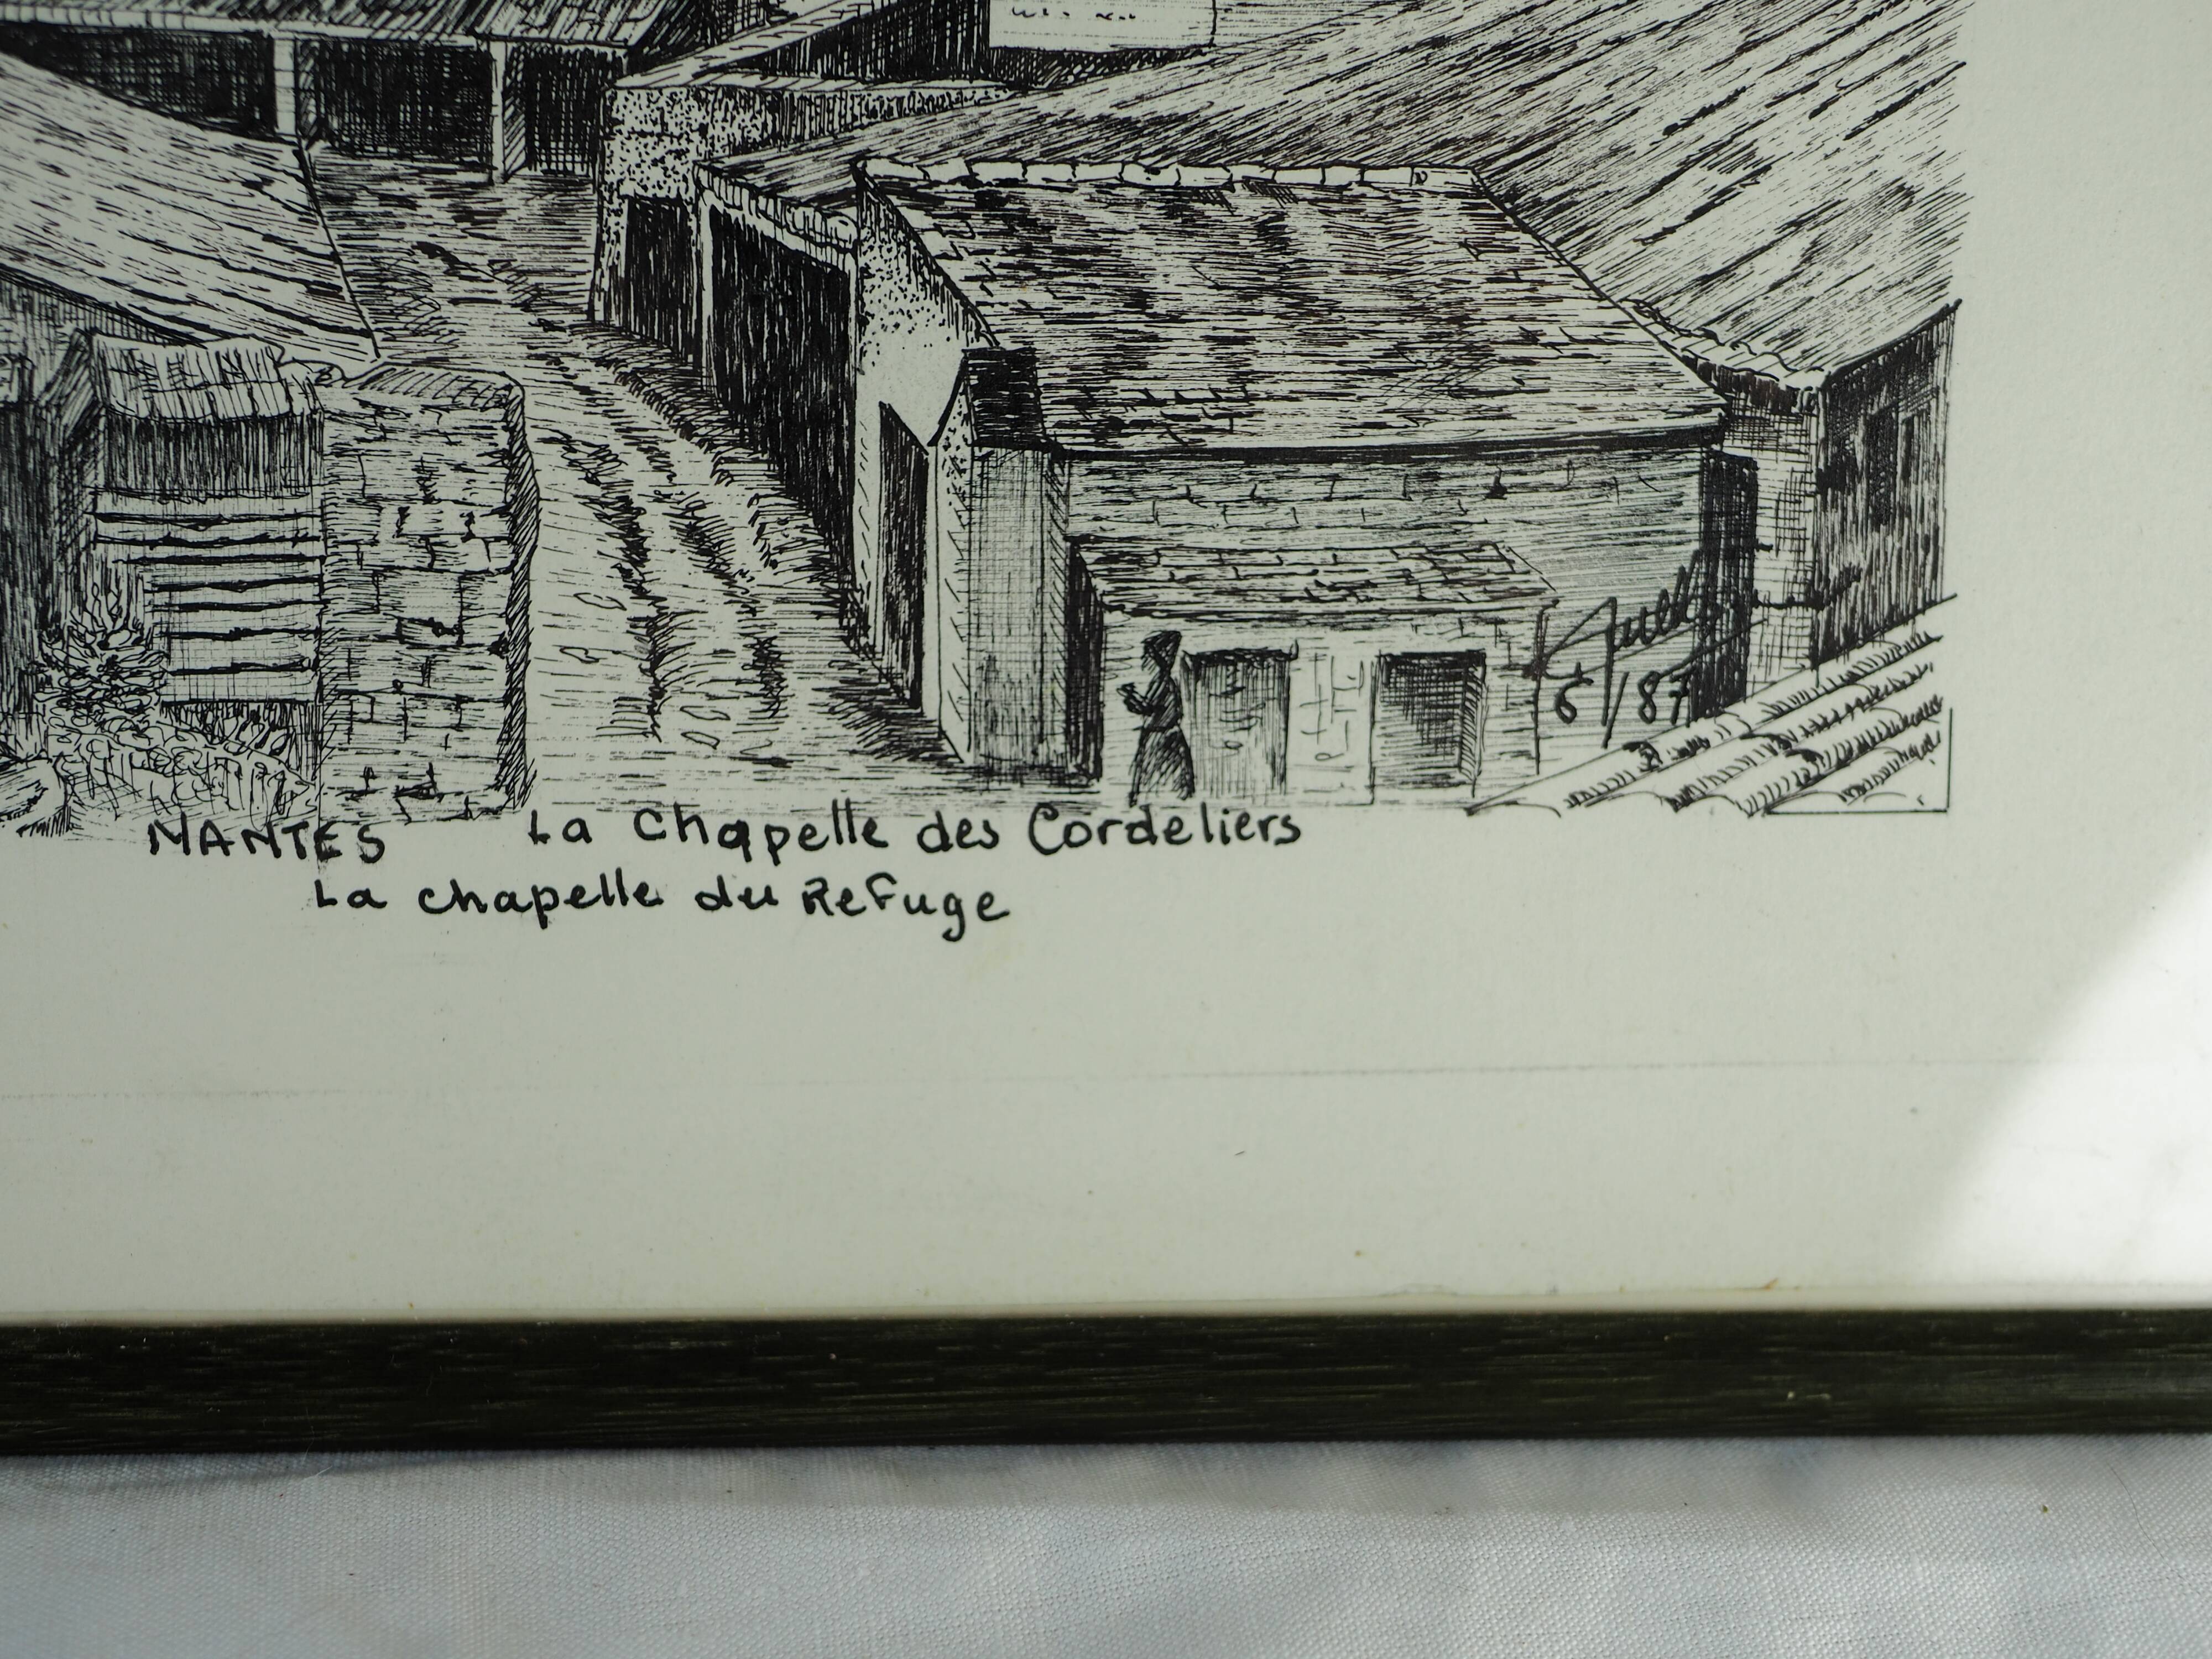 6/87
NANTES La Chapelle des Cordeliers
La chapelle du Refuge